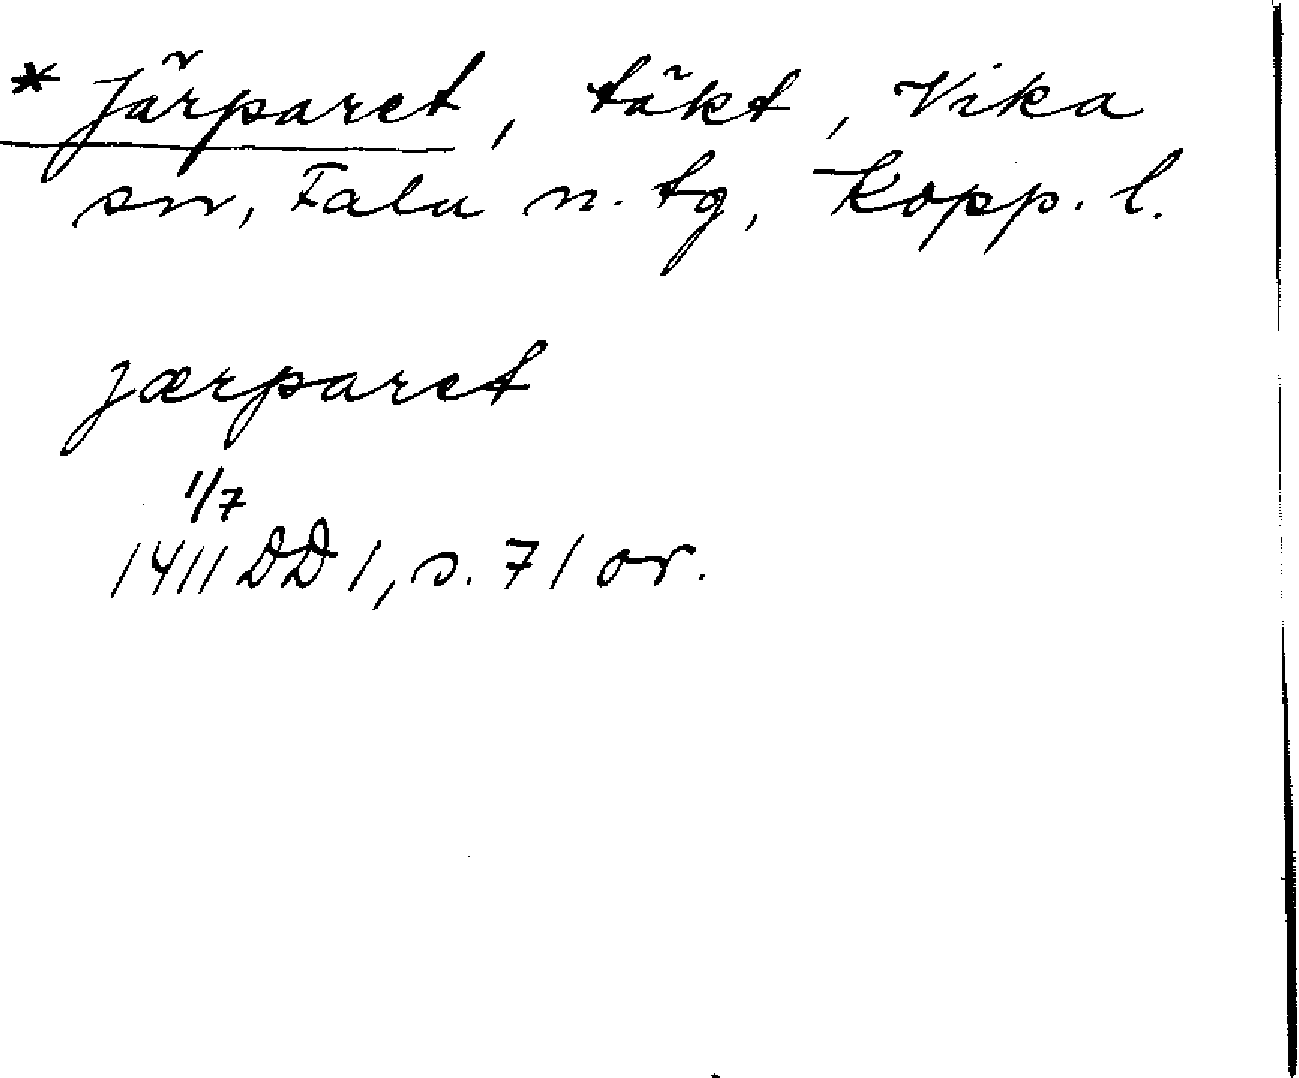 * Järparet, täkt, Vika
sn, Falu n. tg, Kopp. l.
jærparet
1/7
1411 DD 1, s. 71 or.